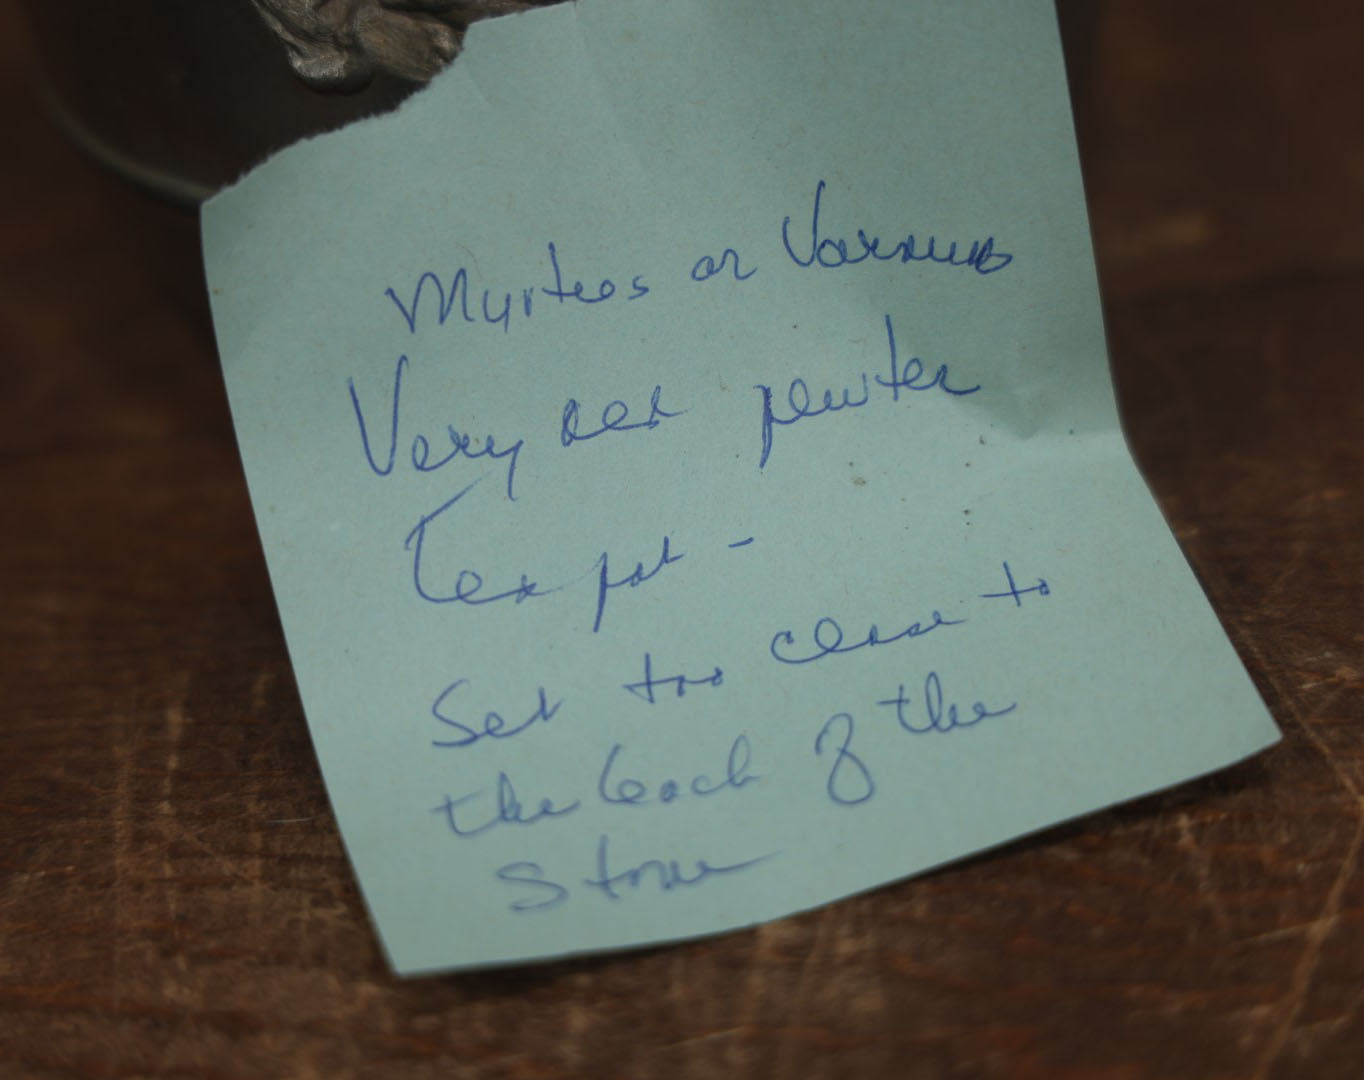 Myrtees or Varnums
Very old pewter
Tea pot -
Set too close to
the back of the
stove